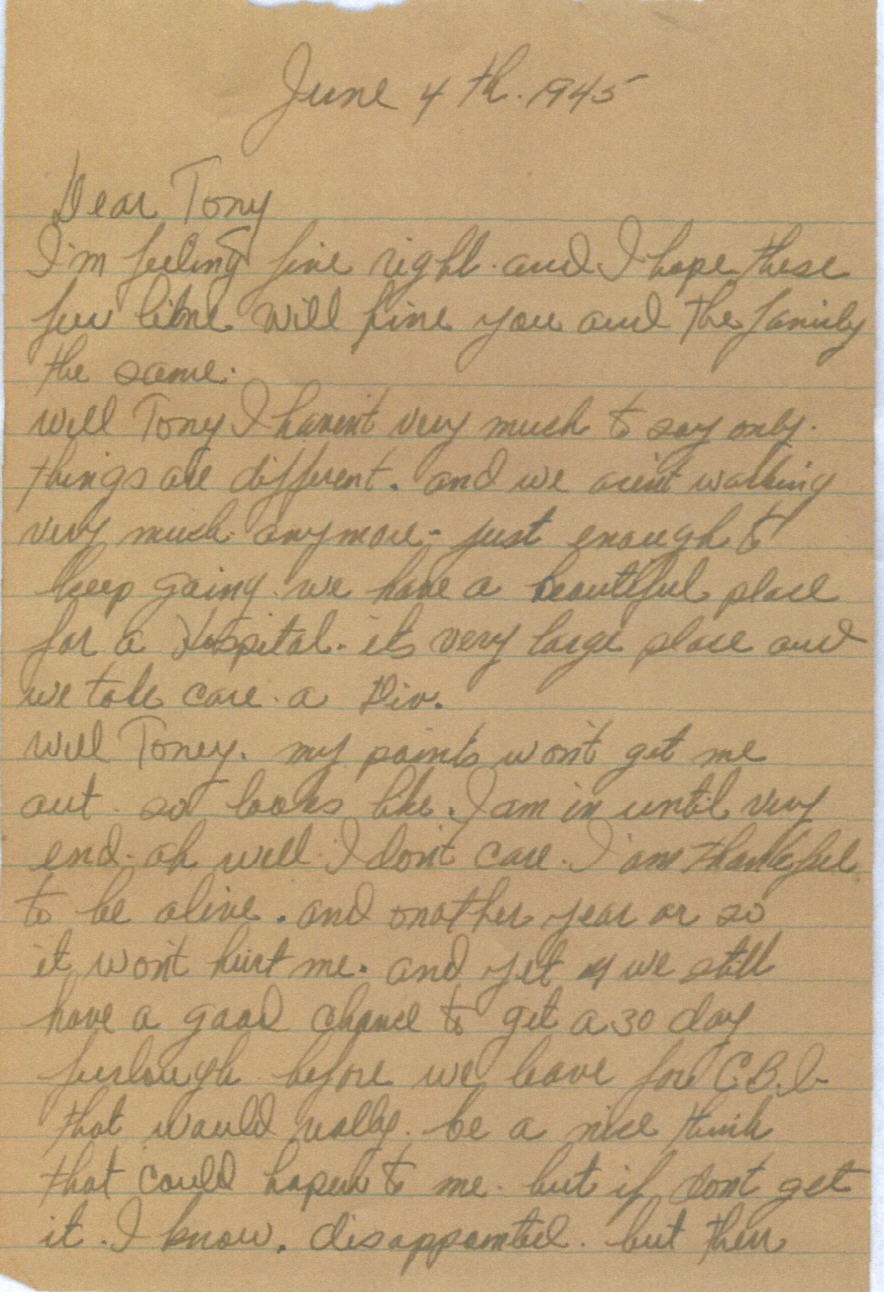 June 4th. 1945
Dear Tony
I'm feeling fine right. and I hope these
few line will fine you and the family
the same.
Will Tony I haven't very much to say only.
things are different. and we arent walking
very much anymore - just enough to
keep going. we have a beautiful place
for a Hospital. its very large place and
we take care. a Div.
Will Toney. my points won't get me
out. so looks like. I am in until very
end. ah well I don't care. I am thankful
to be alive. and another year or so
it won't hurt me. and yet we still
have a good chance to get a 30 day
furlough before we leave for C.B.I-
that would really. be a nice think
that could hapen to me. but if dont get
it. I know. disappointed. but then